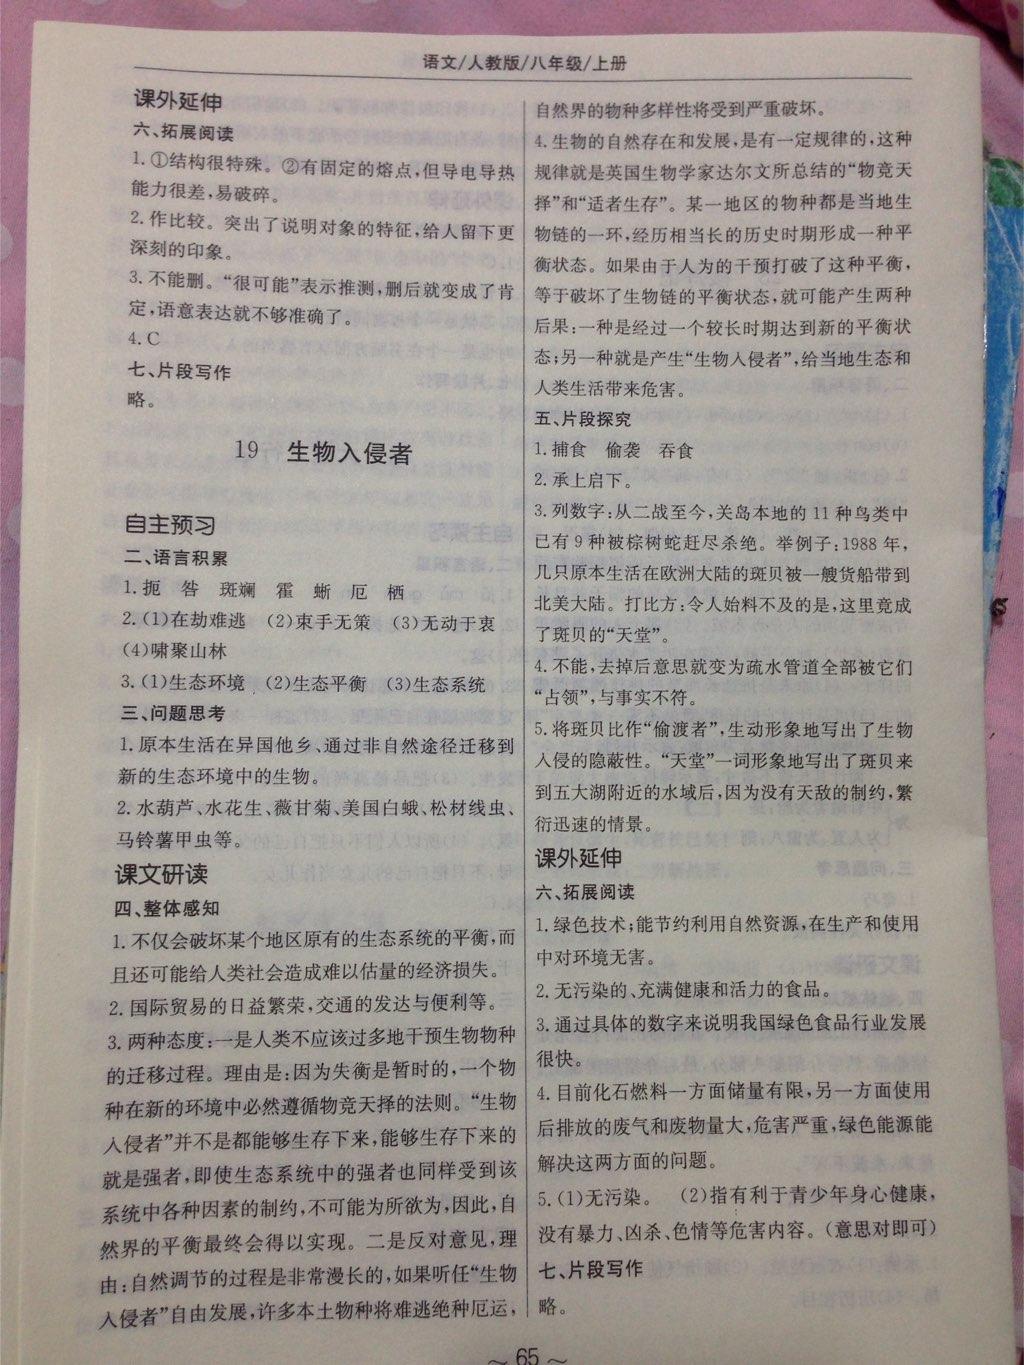 语文/人教版/八年级/上册
课外延伸
六、拓展阅读
1.①结构很特殊。②有固定的熔点,但导电导热
能力很差,易破碎。
2.作比较。突出了说明对象的特征,给人留下更
深刻的印象。
3.不能删。“很可能”表示推测,删后就变成了肯
定,语意表达就不够准确了。
4.C
七、片段写作
略。
19 生物入侵者
自主预习
二、语言积累
1.扼 咎 斑斓 霍 蜥 厄 栖
2.(1)在劫难逃 (2)束手无策 (3)无动于衷
(4)啸聚山林
3.(1)生态环境 (2)生态平衡 (3)生态系统
三、问题思考
1.原本生活在异国他乡、通过非自然途径迁移到
新的生态环境中的生物。
2.水葫芦、水花生、薇甘菊、美国白蛾、松材线虫、
马铃薯甲虫等。
课文研读
四、整体感知
1.不仅会破坏某个地区原有的生态系统的平衡,而
且还可能给人类社会造成难以估量的经济损失。
2.国际贸易的日益繁荣,交通的发达与便利等。
3.两种态度:一是人类不应该过多地干预生物物种
的迁移过程。理由是:因为失衡是暂时的,一个物
种在新的环境中必然遵循物竞天择的法则。“生物
入侵者”并不是都能够生存下来,能够生存下来的
就是强者,即使生态系统中的强者也同样受到该
系统中各种因素的制约,不可能为所欲为,因此,自
然界的平衡最终会得以实现。二是反对意见,理
由:自然调节的过程是非常漫长的,如果听任“生物
入侵者”自由发展,许多本土物种将难逃绝种厄运,
自然界的物种多样性将受到严重破坏。
4.生物的自然存在和发展,是有一定规律的,这种
规律就是英国生物学家达尔文所总结的“物竞天
择”和“适者生存”。某一地区的物种都是当地生
物链的一环,经历相当长的历史时期形成一种平
衡状态。如果由于人为的干预打破了这种平衡,
等于破坏了生物链的平衡状态,就可能产生两种
后果:一种是经过一个较长时期达到新的平衡状
态;另一种就是产生“生物入侵者”,给当地生态和
人类生活带来危害。
五、片段探究
1.捕食 偷袭 吞食
2.承上启下。
3.列数字:从二战至今,关岛本地的11种鸟类中
已有9种被棕树蛇赶尽杀绝。举例子:1988年,
几只原本生活在欧洲大陆的斑贝被一艘货船带到
北美大陆。打比方:令人始料不及的是,这里竟成
了斑贝的“天堂”。
4.不能,去掉后意思就变为疏水管道全部被它们
“占领”,与事实不符。
5.将斑贝比作“偷渡者”,生动形象地写出了生物
入侵的隐蔽性。“天堂”一词形象地写出了斑贝来
到五大湖附近的水域后,因为没有天敌的制约,繁
衍迅速的情景。
课外延伸
六、拓展阅读
1.绿色技术;能节约利用自然资源,在生产和使用
中对环境无害。
2.无污染的、充满健康和活力的食品。
3.通过具体的数字来说明我国绿色食品行业发展
很快。
4.目前化石燃料一方面储量有限,另一方面使用
后排放的废气和废物量大,危害严重,绿色能源能
解决这两方面的问题。
5.(1)无污染。 (2)指有利于青少年身心健康,
没有暴力、凶杀、色情等危害内容。(意思对即可)
七、片段写作
略。
~ 65 ~